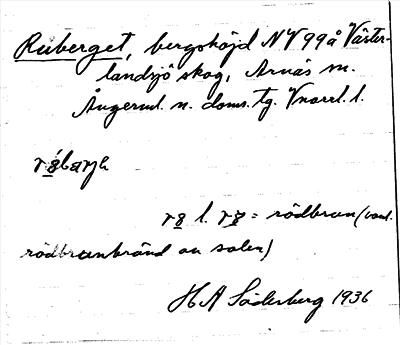 Ruberget, bergshöjd NV 99 å Väster-
landsjö skog, Arnäs sn.
Ångerml. n. doms. tg. Vnorrl. l.
rö́barjə
rö l. rø = rödbrun (vanl.
rödbrunbränd av solen)
H A Söderberg 1936